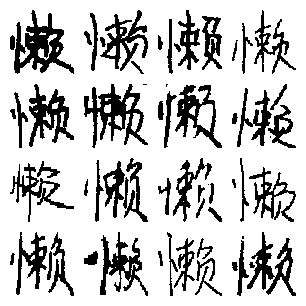 懒懒懒懒
懒懒懒懒
懒懒懒懒
懒懒懒懒